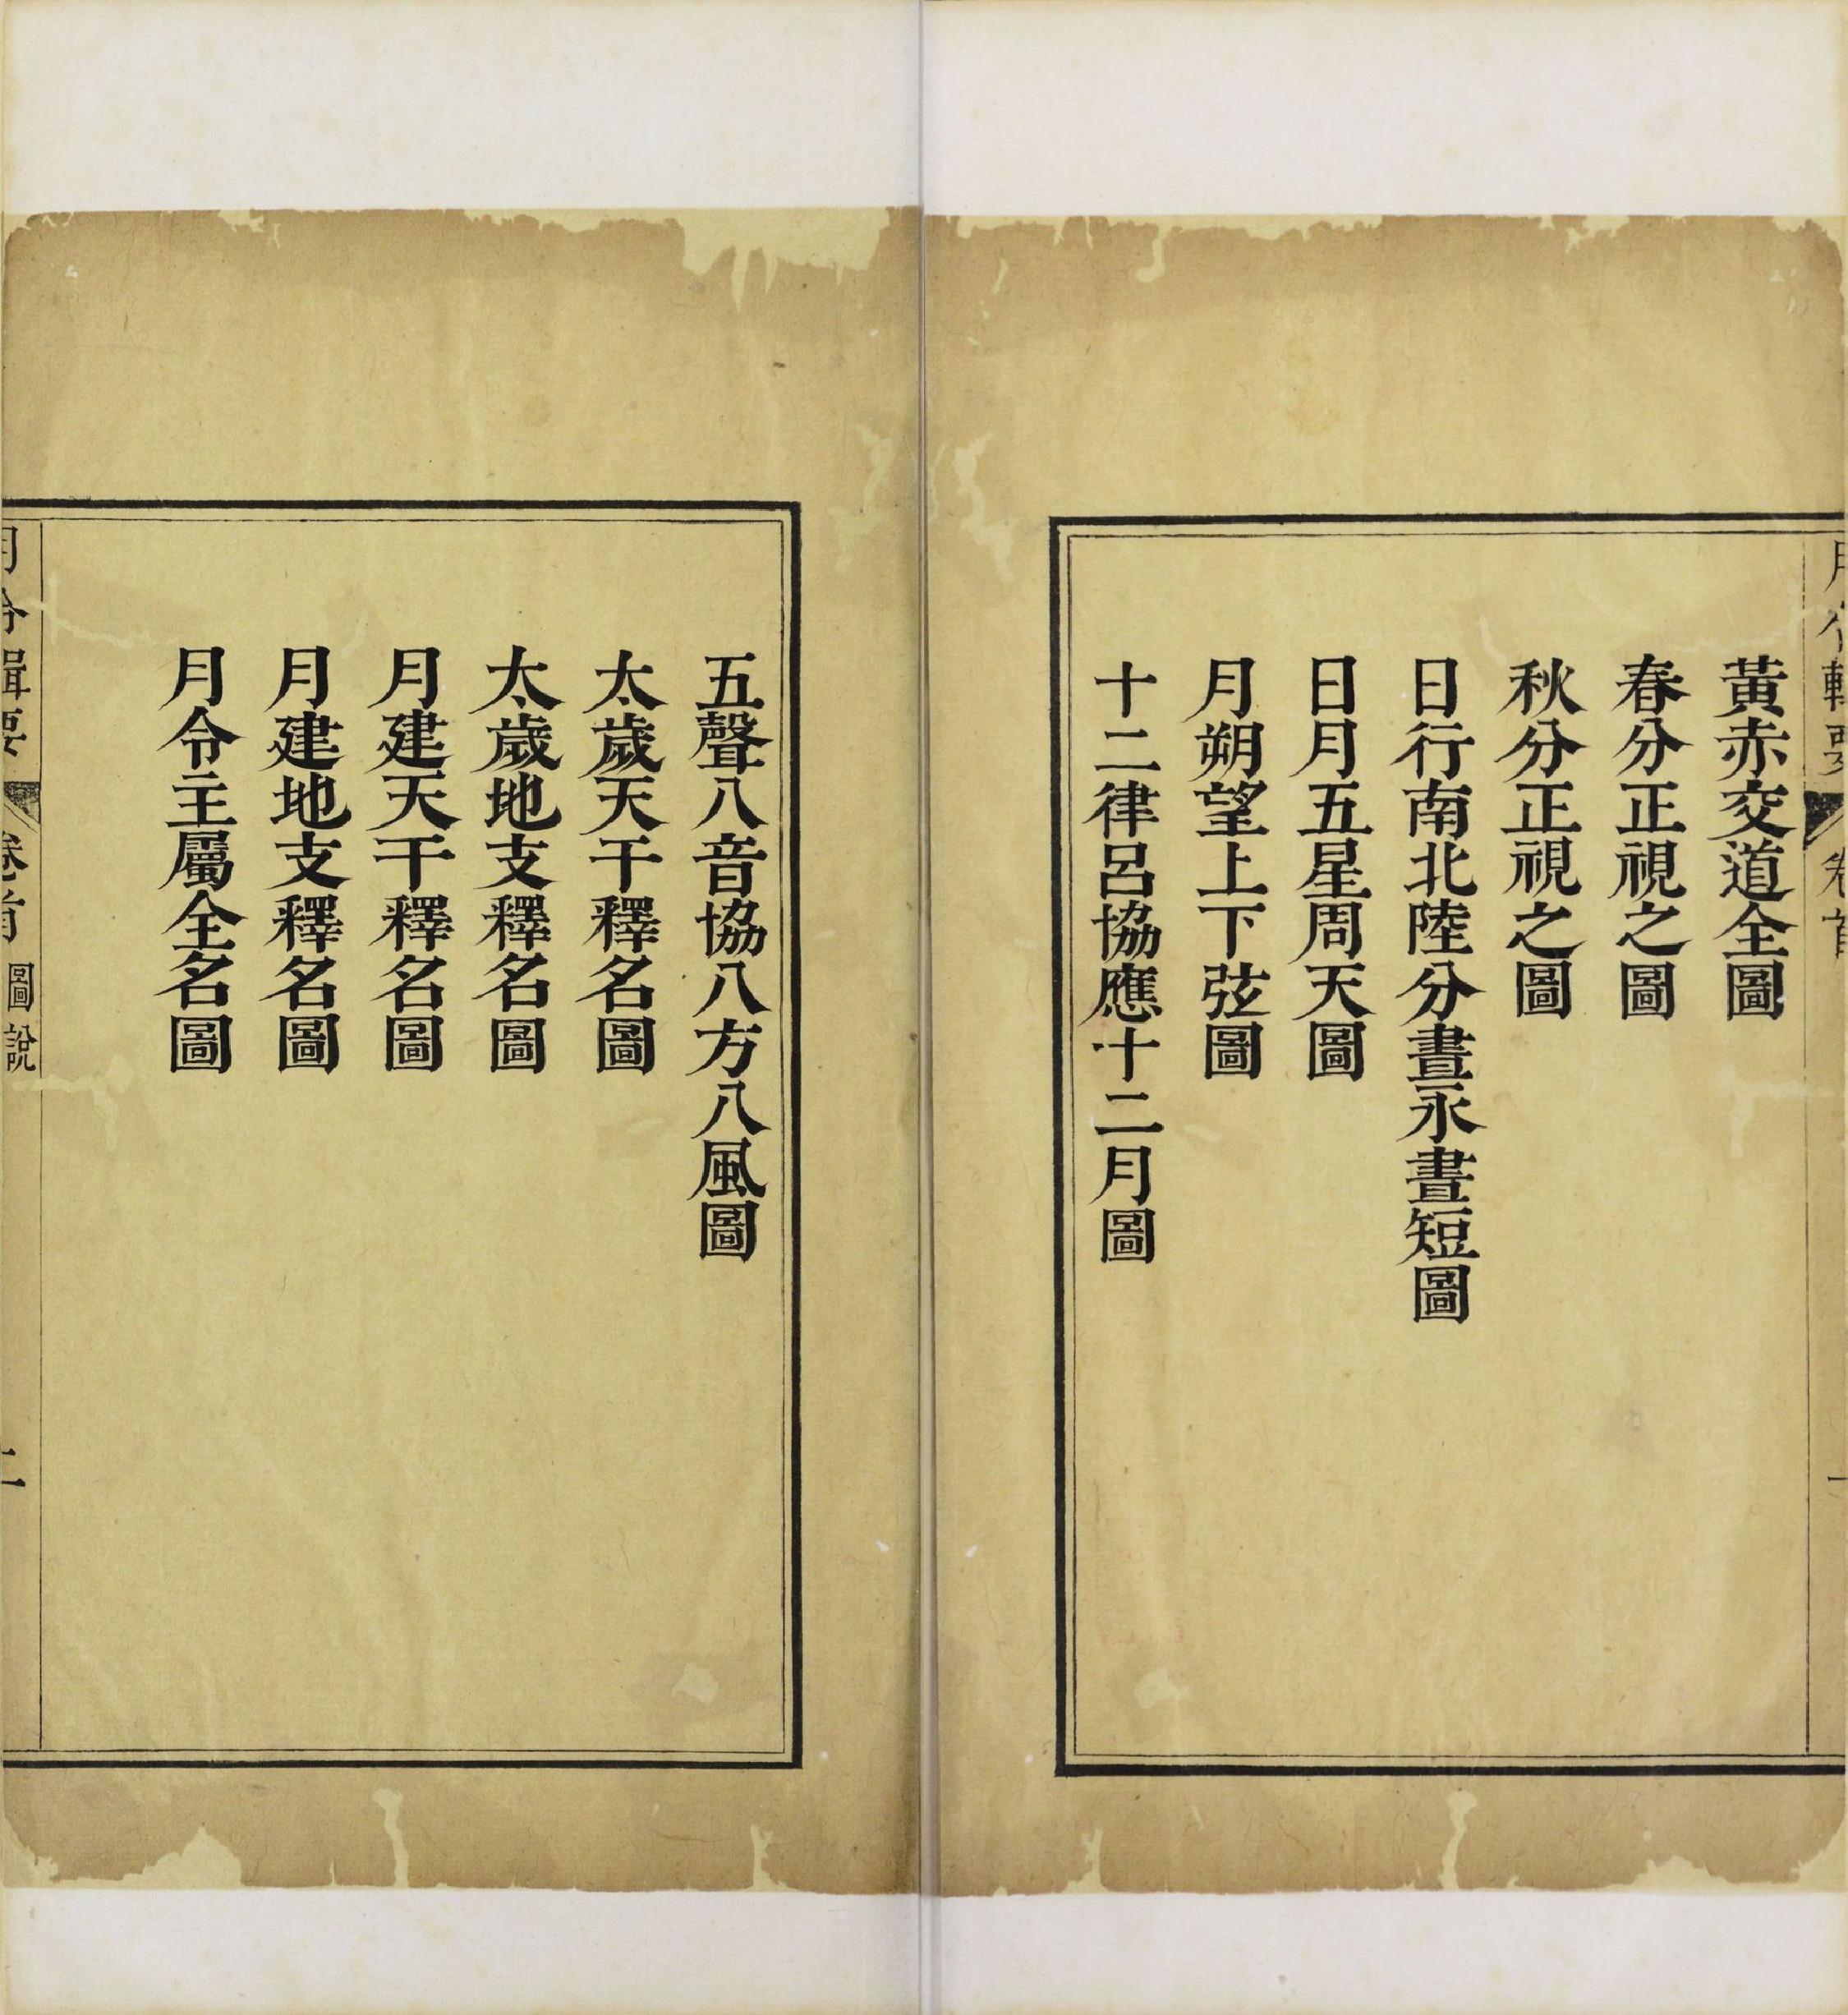 黃赤交道全圖
春分正視之圖
秋分正視之圖
日行南北陸分晝永晝短圖
日月五星周天圖
月朔望上下弦圖
十二律呂協應十二月圖
五聲八音協八方八風圖
太歲天干釋名圖
太歲地支釋名圖
月建天干釋名圖
月建地支釋名圖
月令主屬全名圖
月令輯要
卷首
圖說
二